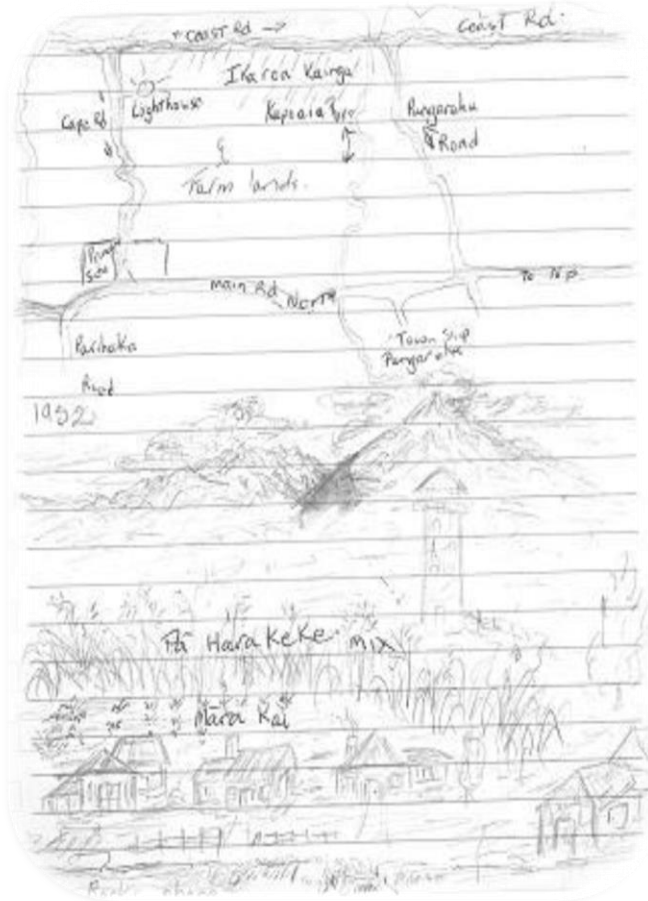 Coast Rd →
Coast Rd.
Ikaroa Kainga
Lighthouse
Cape Rd
Pungarehu
Road
Farm lands.
Main Rd North
To N.P.
Parihaka
Road
Town Ship
Pungarehu
1952
Pā Harakeke mix
Māra Kai